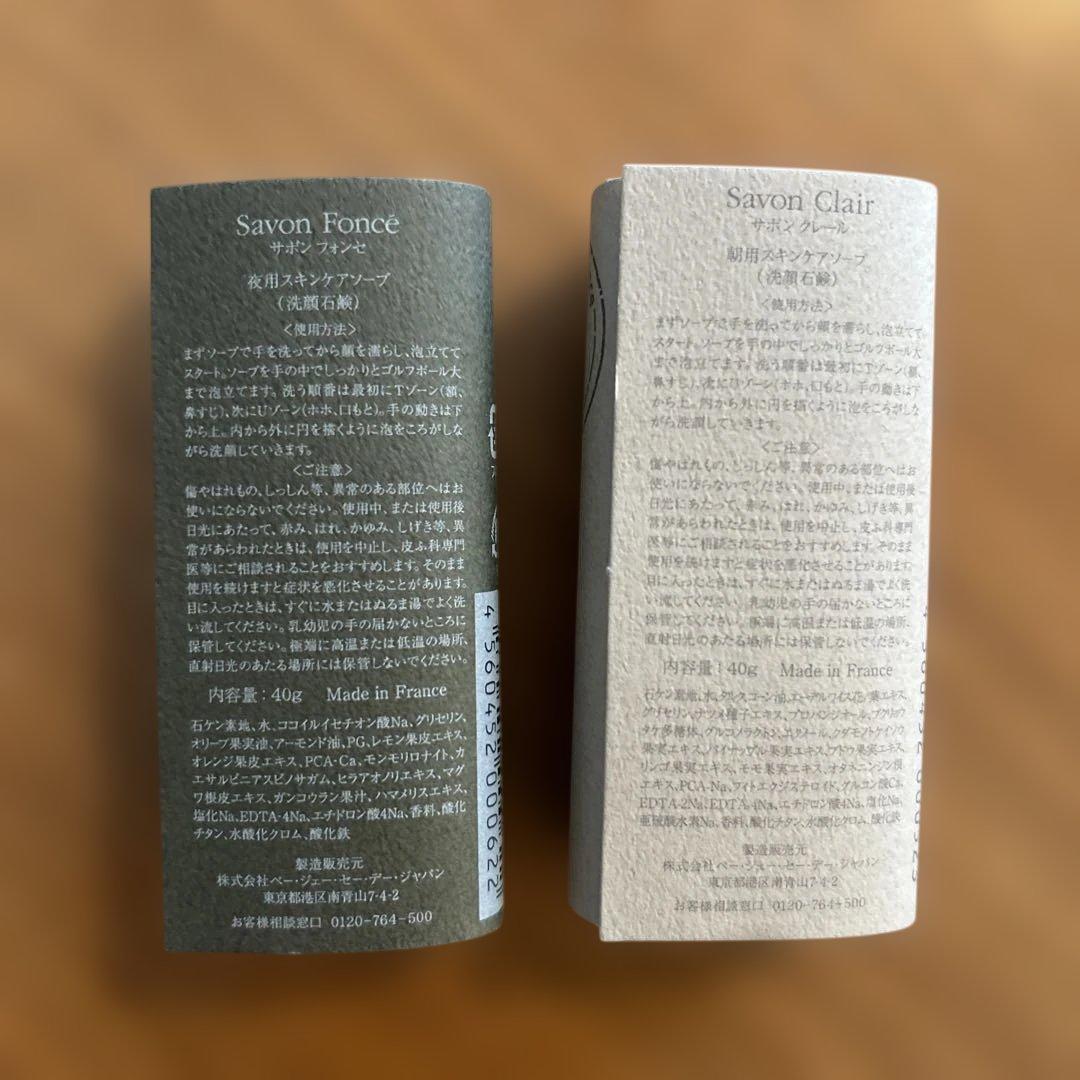 Savon Foncé
サボン フォンセ
夜用スキンケアソープ
（洗顔石鹸）
＜使用方法＞
まずソープで手を洗ってから顔を濡らし、泡立てて
スタート。ソープを手の中でしっかりとゴルフボール大
まで泡立てます。洗う順番は最初にTゾーン（額、
鼻すじ）、次にUゾーン（ホホ、口もと）。手の動きは下
から上。内から外に円を描くように泡をころがしな
がら洗顔していきます。
＜ご注意＞
傷やはれもの、しっしん等、異常のある部位へはお
使いにならないでください。使用中、または使用後
日光にあたって、赤み、はれ、かゆみ、しげき等、異
常があらわれたときは、使用を中止し、皮ふ科専門
医等にご相談されることをおすすめします。そのまま
使用を続けますと症状を悪化させることがあります。
目に入ったときは、すぐに水またはぬるま湯でよく洗
い流してください。乳幼児の手の届かないところに
保管してください。極端に高温または低温の場所、
直射日光のあたる場所には保管しないでください。
内容量：40g Made in France
石ケン素地、水、ココイルイセチオン酸Na、グリセリン、
オリーブ果実油、アーモンド油、PG、レモン果皮エキス、
オレンジ果皮エキス、PCA・Ca、モンモリロナイト、カ
エサルピニアスピノサガム、ヒラアオノリエキス、マグ
ワ根皮エキス、ガンコウラン果汁、ハマメリスエキス、
塩化Na、EDTA-4Na、エチドロン酸4Na、香料、酸化
チタン、水酸化クロム、酸化鉄
製造販売元
株式会社ペー・ジェー・セー・デー・ジャパン
東京都港区南青山7-4-2
お客様相談窓口 0120-764-500
4 560452 000622
Savon Clair
サボン クレール
朝用スキンケアソープ
（洗顔石鹸）
＜使用方法＞
まずソープで手を洗ってから顔を濡らし、泡立てて
スタート。ソープを手の中でしっかりとゴルフボール大
まで泡立てます。洗う順番は最初にTゾーン（額、
鼻すじ）、次にUゾーン（ホホ、口もと）。手の動きは下
から上。内から外に円を描くように泡をころがしな
がら洗顔していきます。
＜ご注意＞
傷やはれもの、しっしん等、異常のある部位へはお
使いにならないでください。使用中、または使用後
日光にあたって、赤み、はれ、かゆみ、しげき等、異
常があらわれたときは、使用を中止し、皮ふ科専門
医等にご相談されることをおすすめします。そのまま
使用を続けますと症状を悪化させることがあります。
目に入ったときは、すぐに水またはぬるま湯でよく洗
い流してください。乳幼児の手の届かないところに
保管してください。極端に高温または低温の場所、
直射日光のあたる場所には保管しないでください。
内容量：40g Made in France
石ケン素地、水、タルス、コーン油、エーデルワイス花/葉エキス、
グリセリン、ナツメ種子エキス、プロパンジオール、ブクリョウ
タケ多糖体、グルコノラクトン、エタノール、クダモノトケイソウ
果実エキス、パイナップル果実エキス、ブドウ果実エキス、
リンゴ果実エキス、モモ果実エキス、オタネニンジン根
エキス、PCA-Na、フィトエクジステロイド、グルコン酸Ca、
EDTA-2Na、EDTA-4Na、エチドロン酸4Na、塩化Na、
亜硫酸水素Na、香料、酸化チタン、水酸化クロム、酸化鉄
製造販売元
株式会社ペー・ジェー・セー・デー・ジャパン
東京都港区南青山7-4-2
お客様相談窓口 0120-764-500